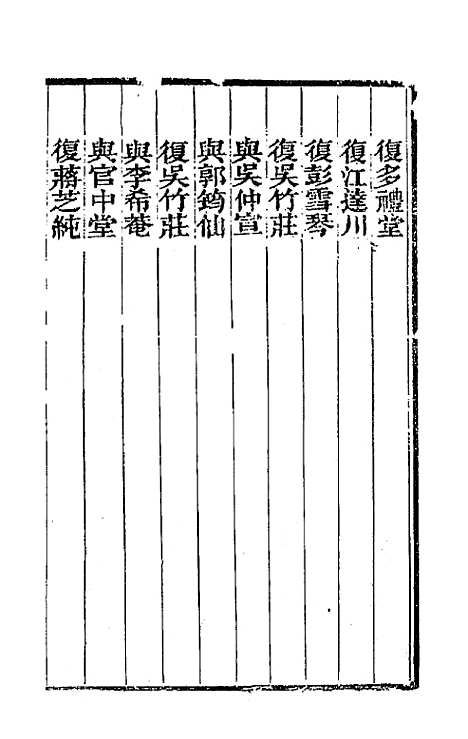 復多禮堂
復江達川
復彭雪琴
復吳竹莊
與吳仲宣
與郭筠仙
復吳竹莊
與李希菴
與官中堂
復蔣芝純